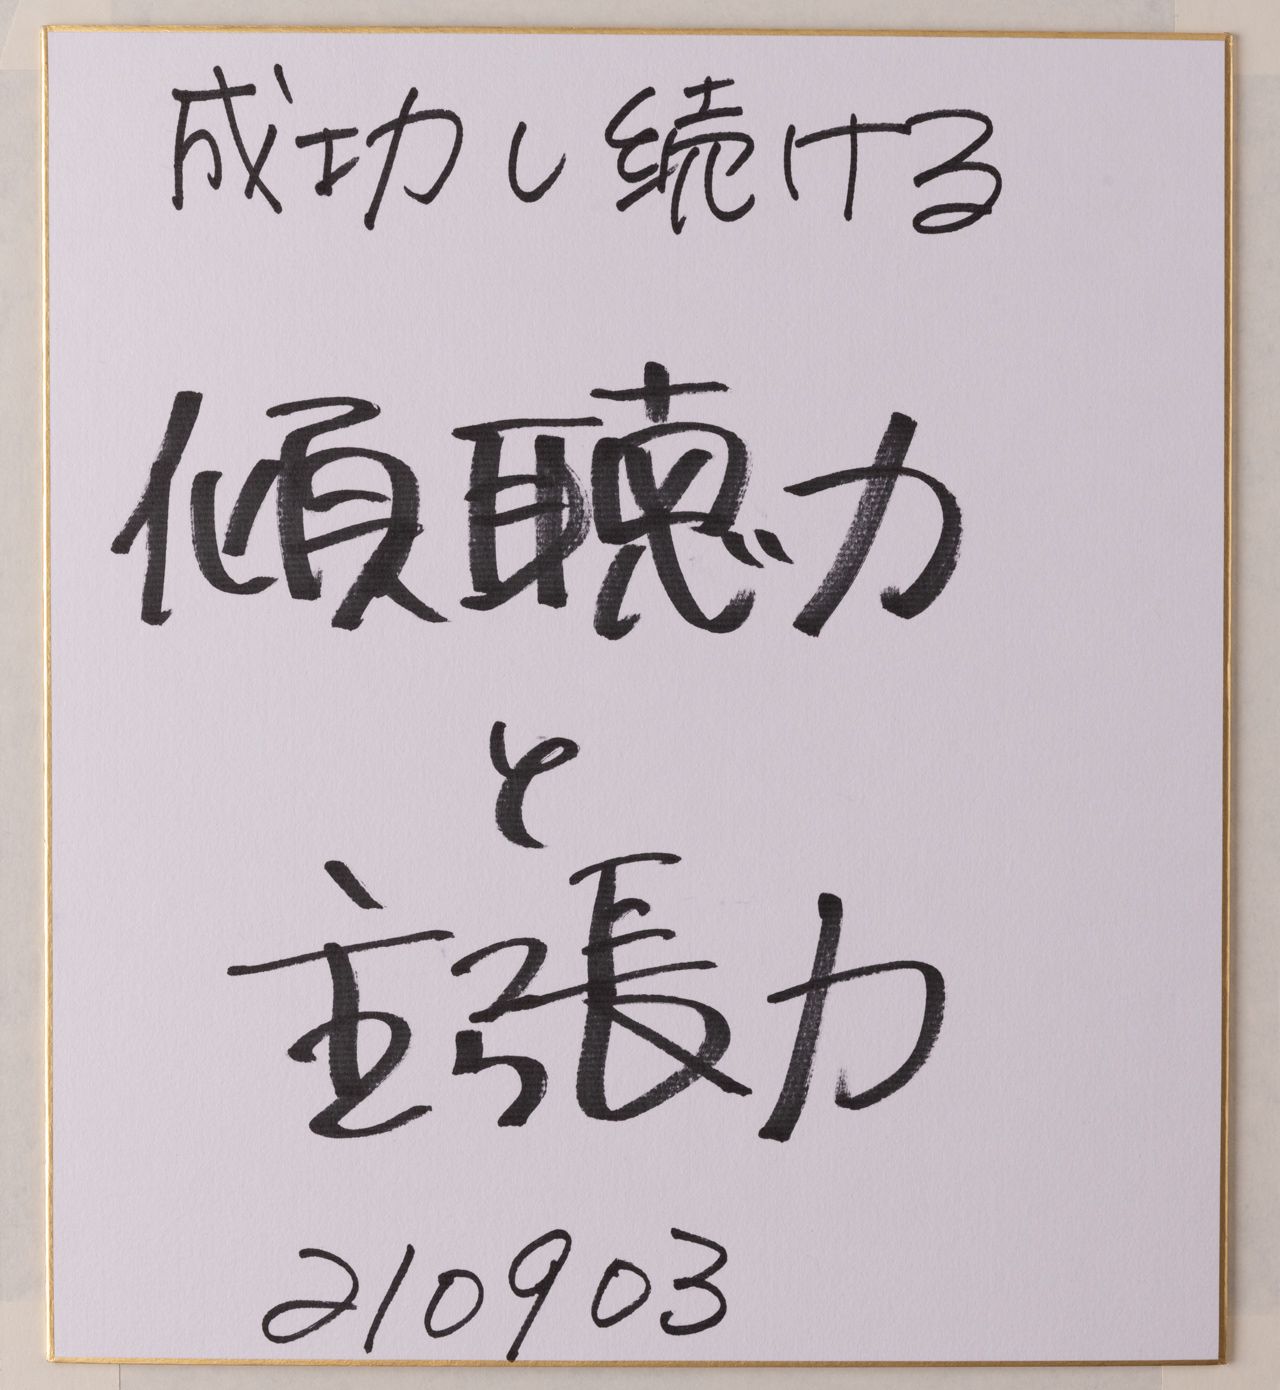 成功し続ける
傾聴力
と
主張力
210903